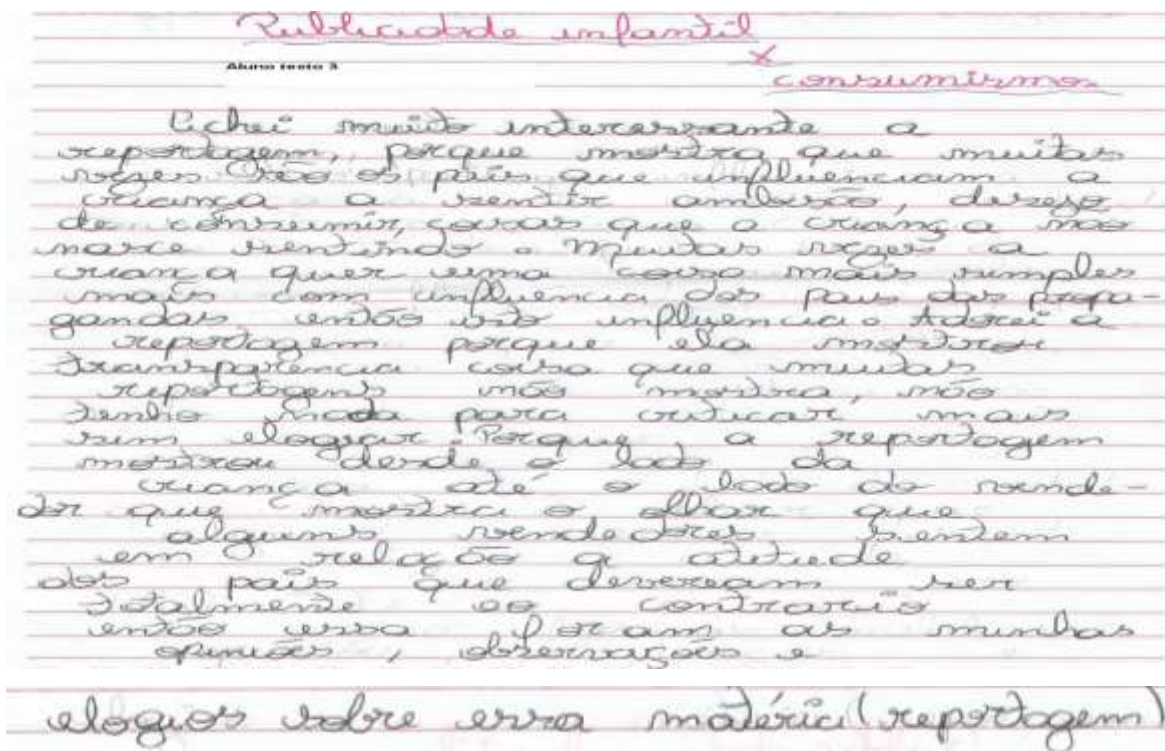 Publicidade infantil
x
Aluno texto 3
consumismos
Echei muito interessante a
reportagem, porque mostra que muitas
vezes são os pais que influenciam a
criança a sentir ambisão, desejo
de consumir, coisas que a criança não
nasce sentindo. Muitas vezes a
criança quer uma coisa mais simples
mais com influencia dos pais das propa-
gandas então isto influencia. Adorei a
reportagem porque ela mostrou
transparência coisa que muitas
reportagens não mostra, não
tenho nada para criticar mais
sim elogiar. Porque, a reportagem
mostrou desde o lado da
criança até o lado do vende-
dor que mostra o olhar que
alguns vendedores sentem
em relação a atitude
dos pais que deveream ser
totalmente ao contrario
então essa foram as minhas
opiniões, observações e
elogios sobre essa matéria (reportagem)